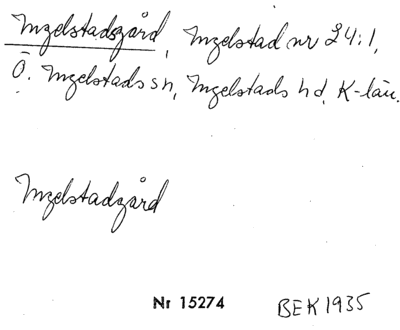 Ingelstadsgård, Ingelstad nr 24:1,
Ö. Ingelstads sn, Ingelstads hd, K-län.
Ingelstadgård
Nr 15274 BEK 1935